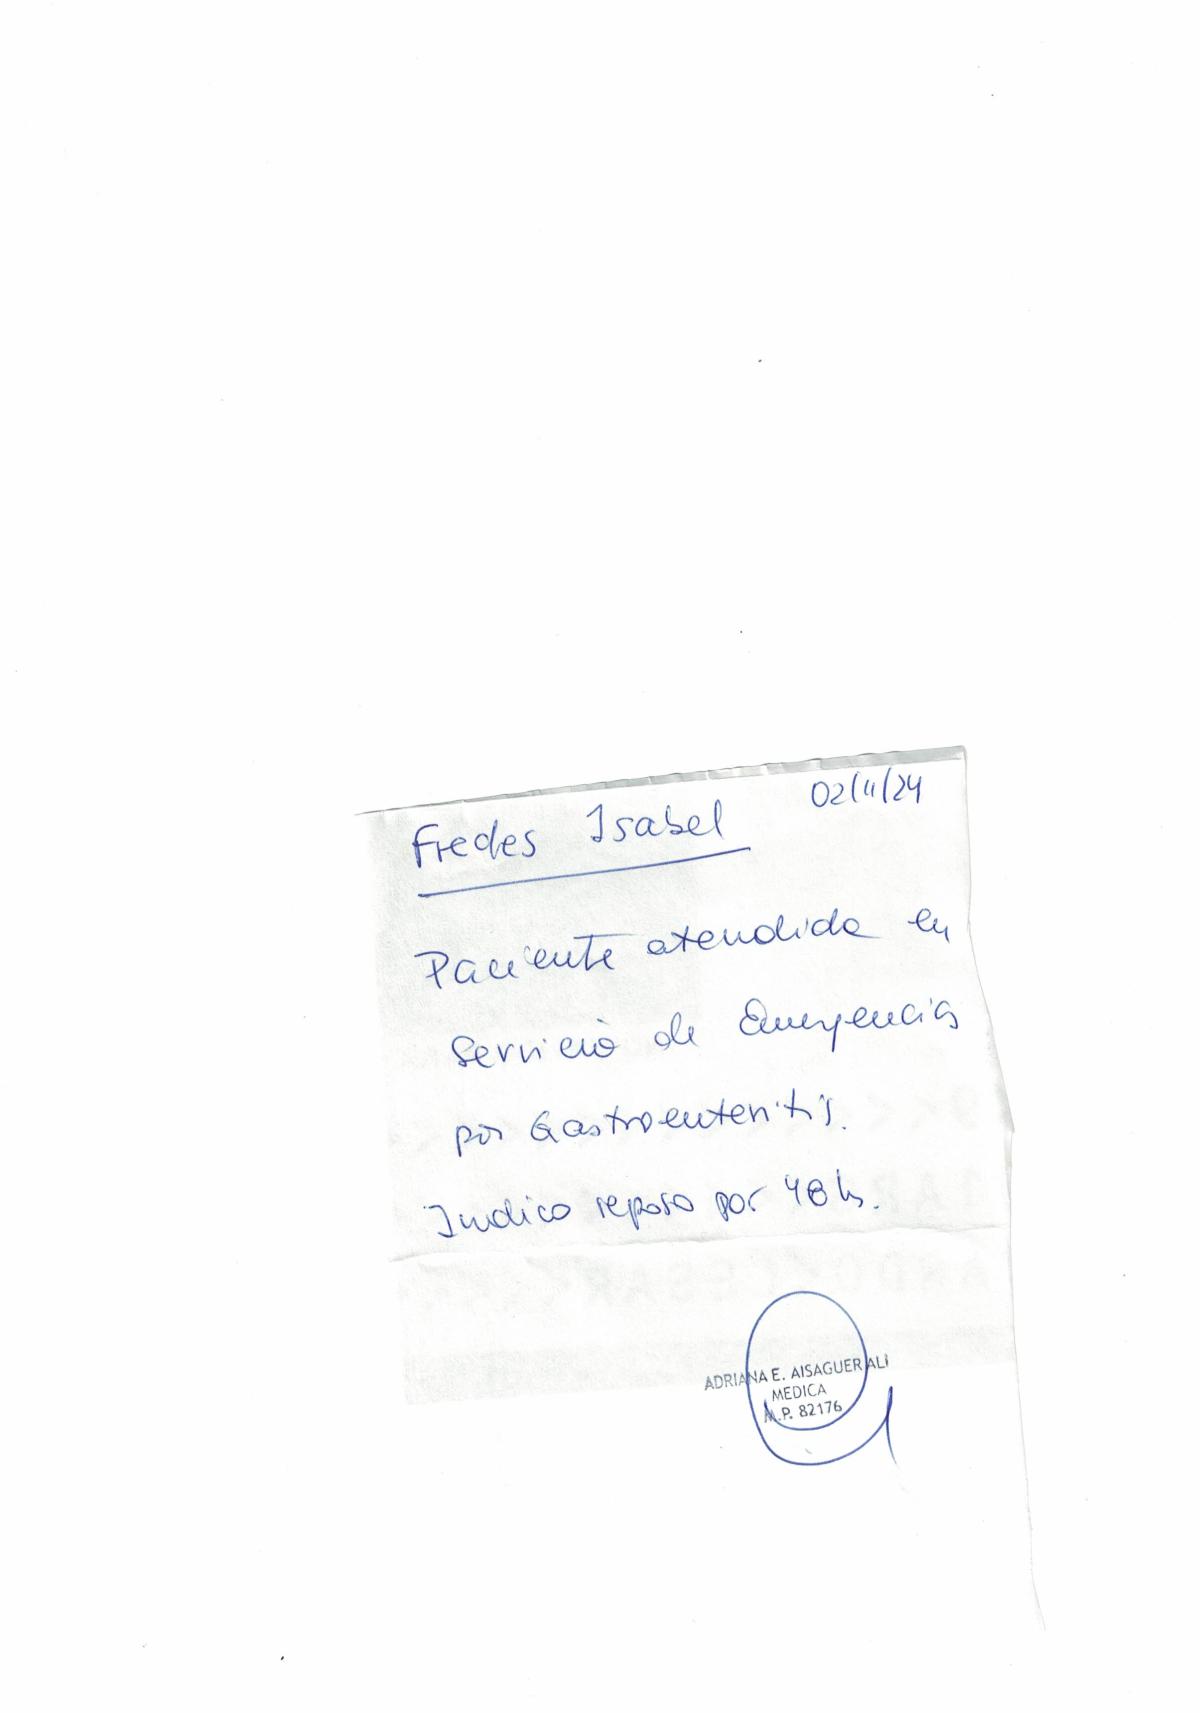 02/11/24
Fredes Isabel
Paciente atendida en
Servicio de Emergencias
por Gastroenteritis.
Indico reposo por 48 hs.
ADRIANA E. AISAGUER ALI
MEDICA
M.P. 82176